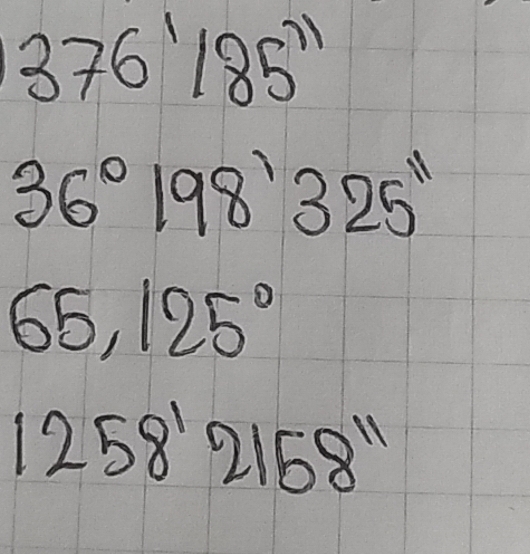 )376'185"
36°198'325"
65,125°
1258'2158"